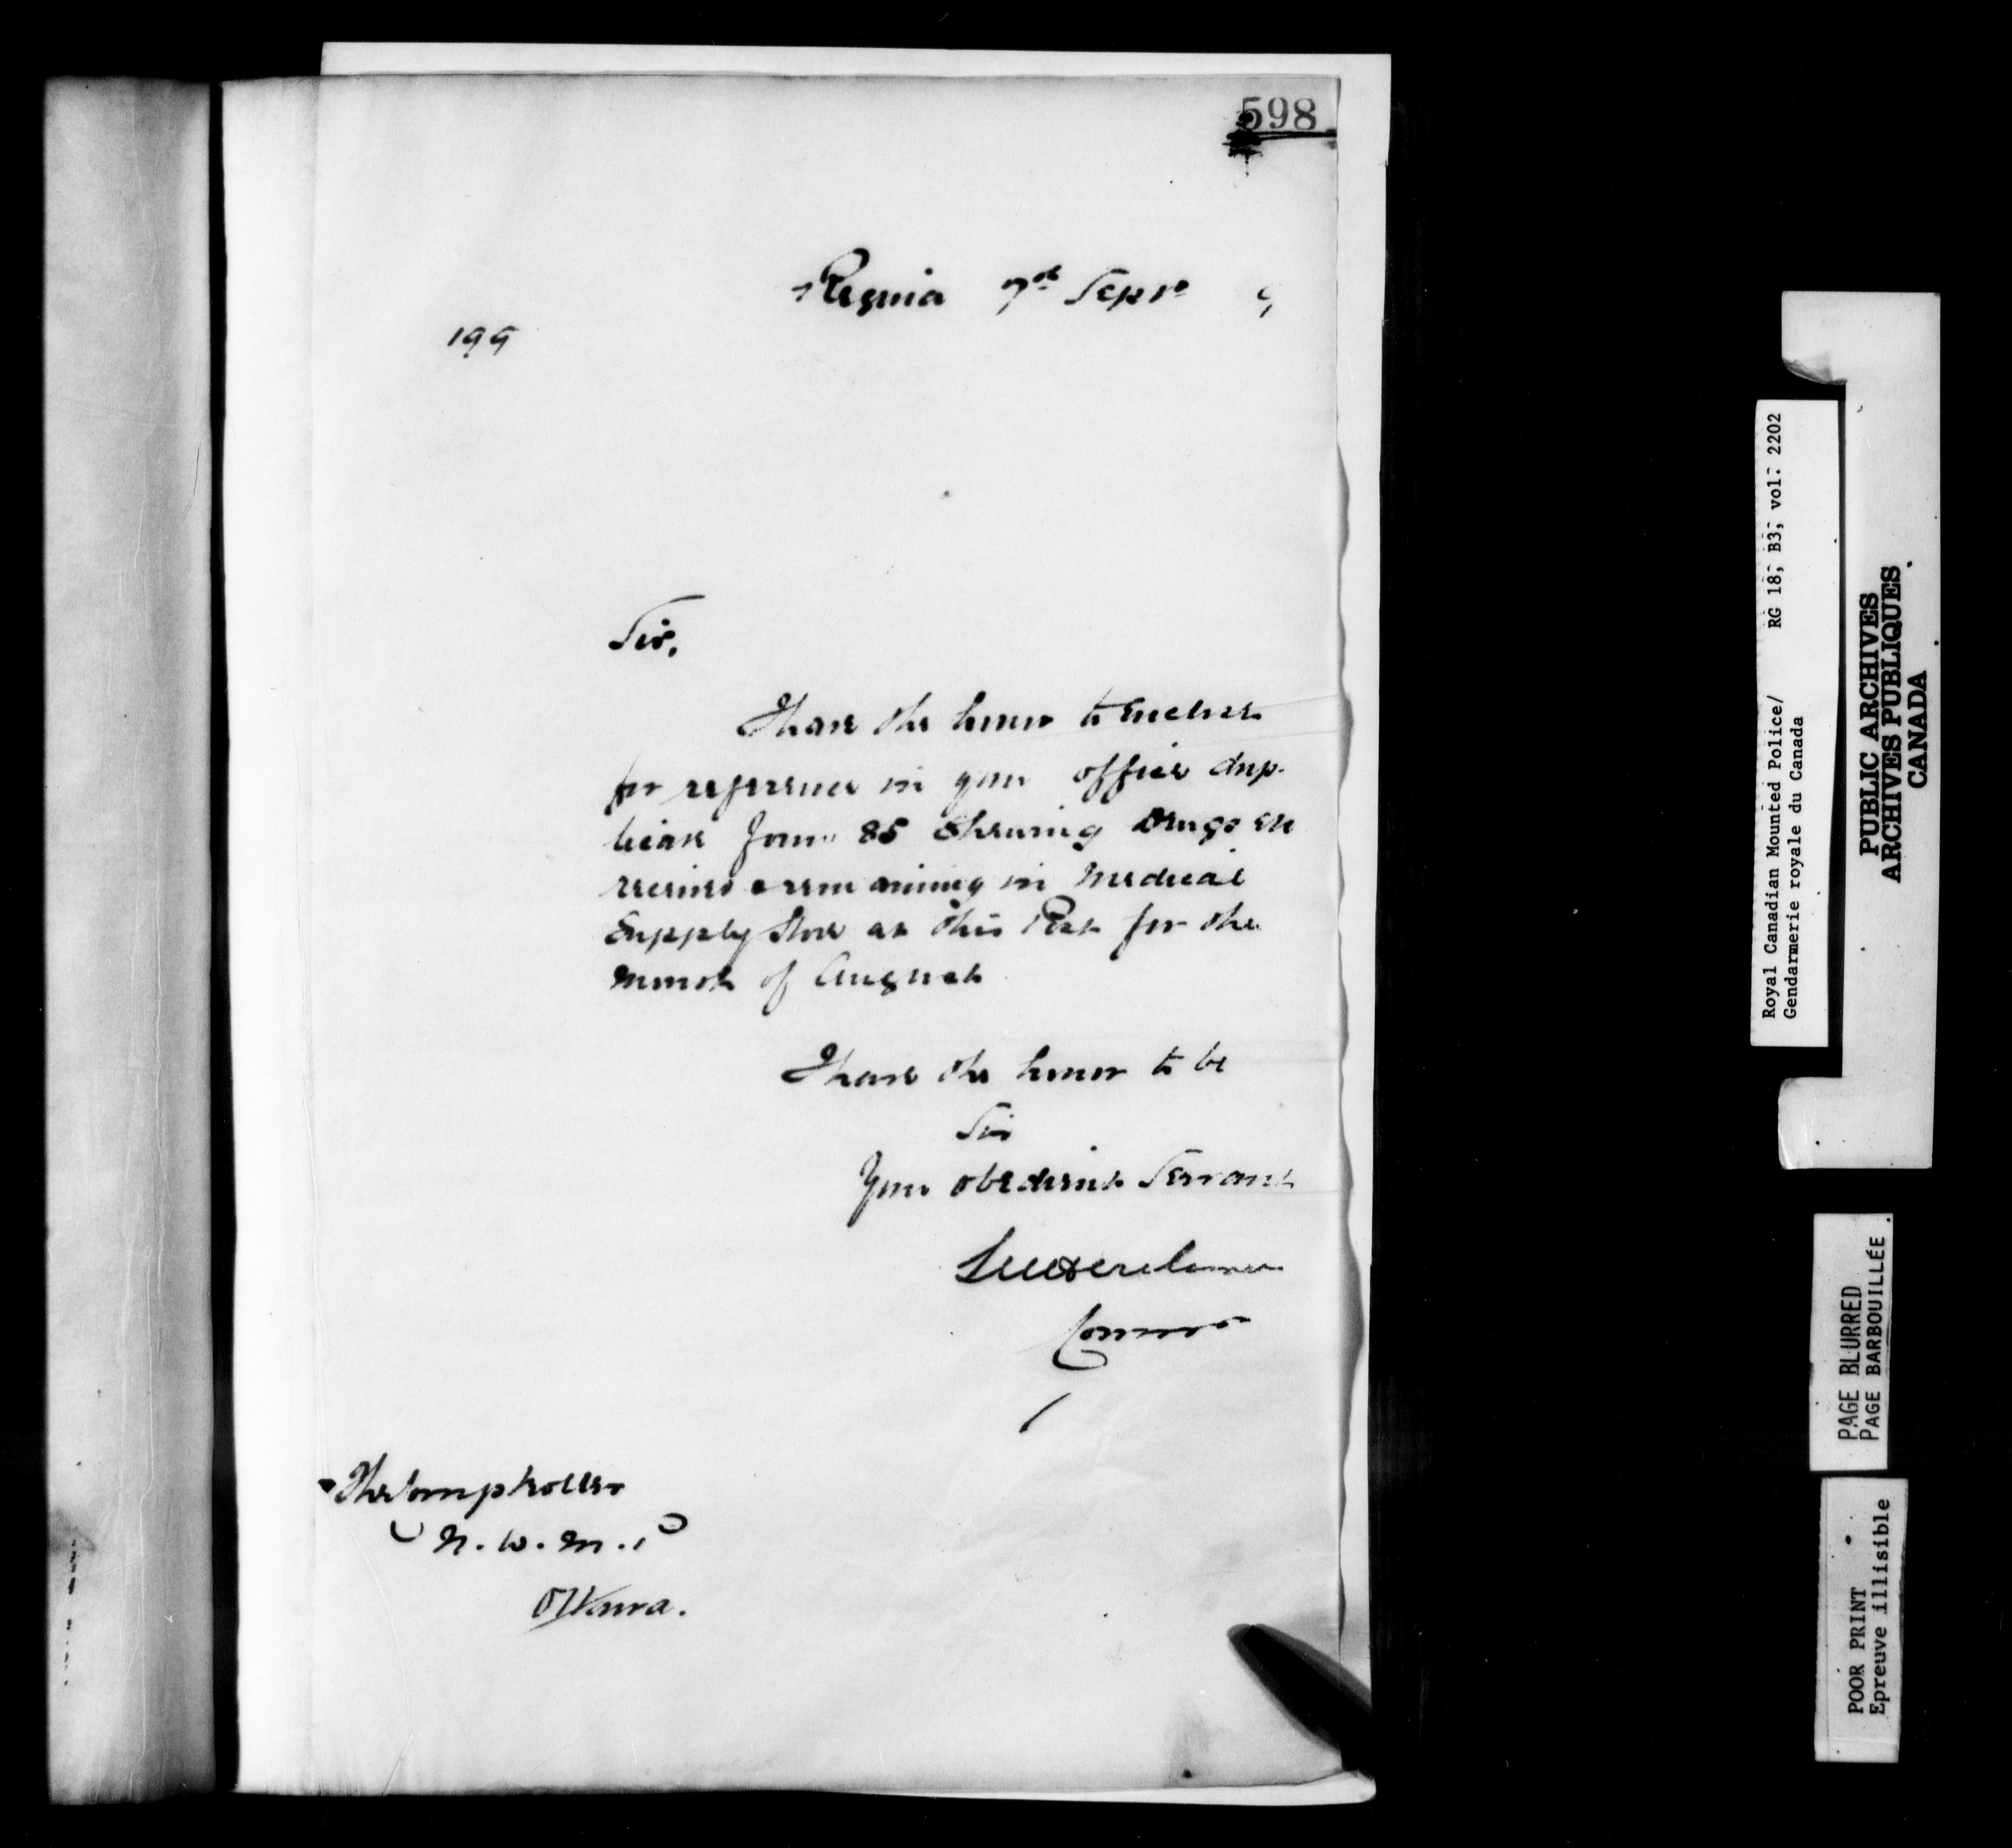 598
Regina 7th Septr 9
199
Sir,
I have the honor to enclose
for reference in your office dup-
licate form 85 shewing Drugs &c
received & remaining in Medical
Supply Store at this Post for the
month of August
I have the honor to be
Sir
Your obedient Servant
Commr
The Comptroller
N.W.M.P
Ottawa.
Royal Canadian Mounted Police/ RG 18, B3, vol. 2202
Gendarmerie royale du Canada
PUBLIC ARCHIVES
ARCHIVES PUBLIQUES
CANADA
PAGE BLURRED
PAGE BARBOUILLÉE
POOR PRINT
Epreuve illisible